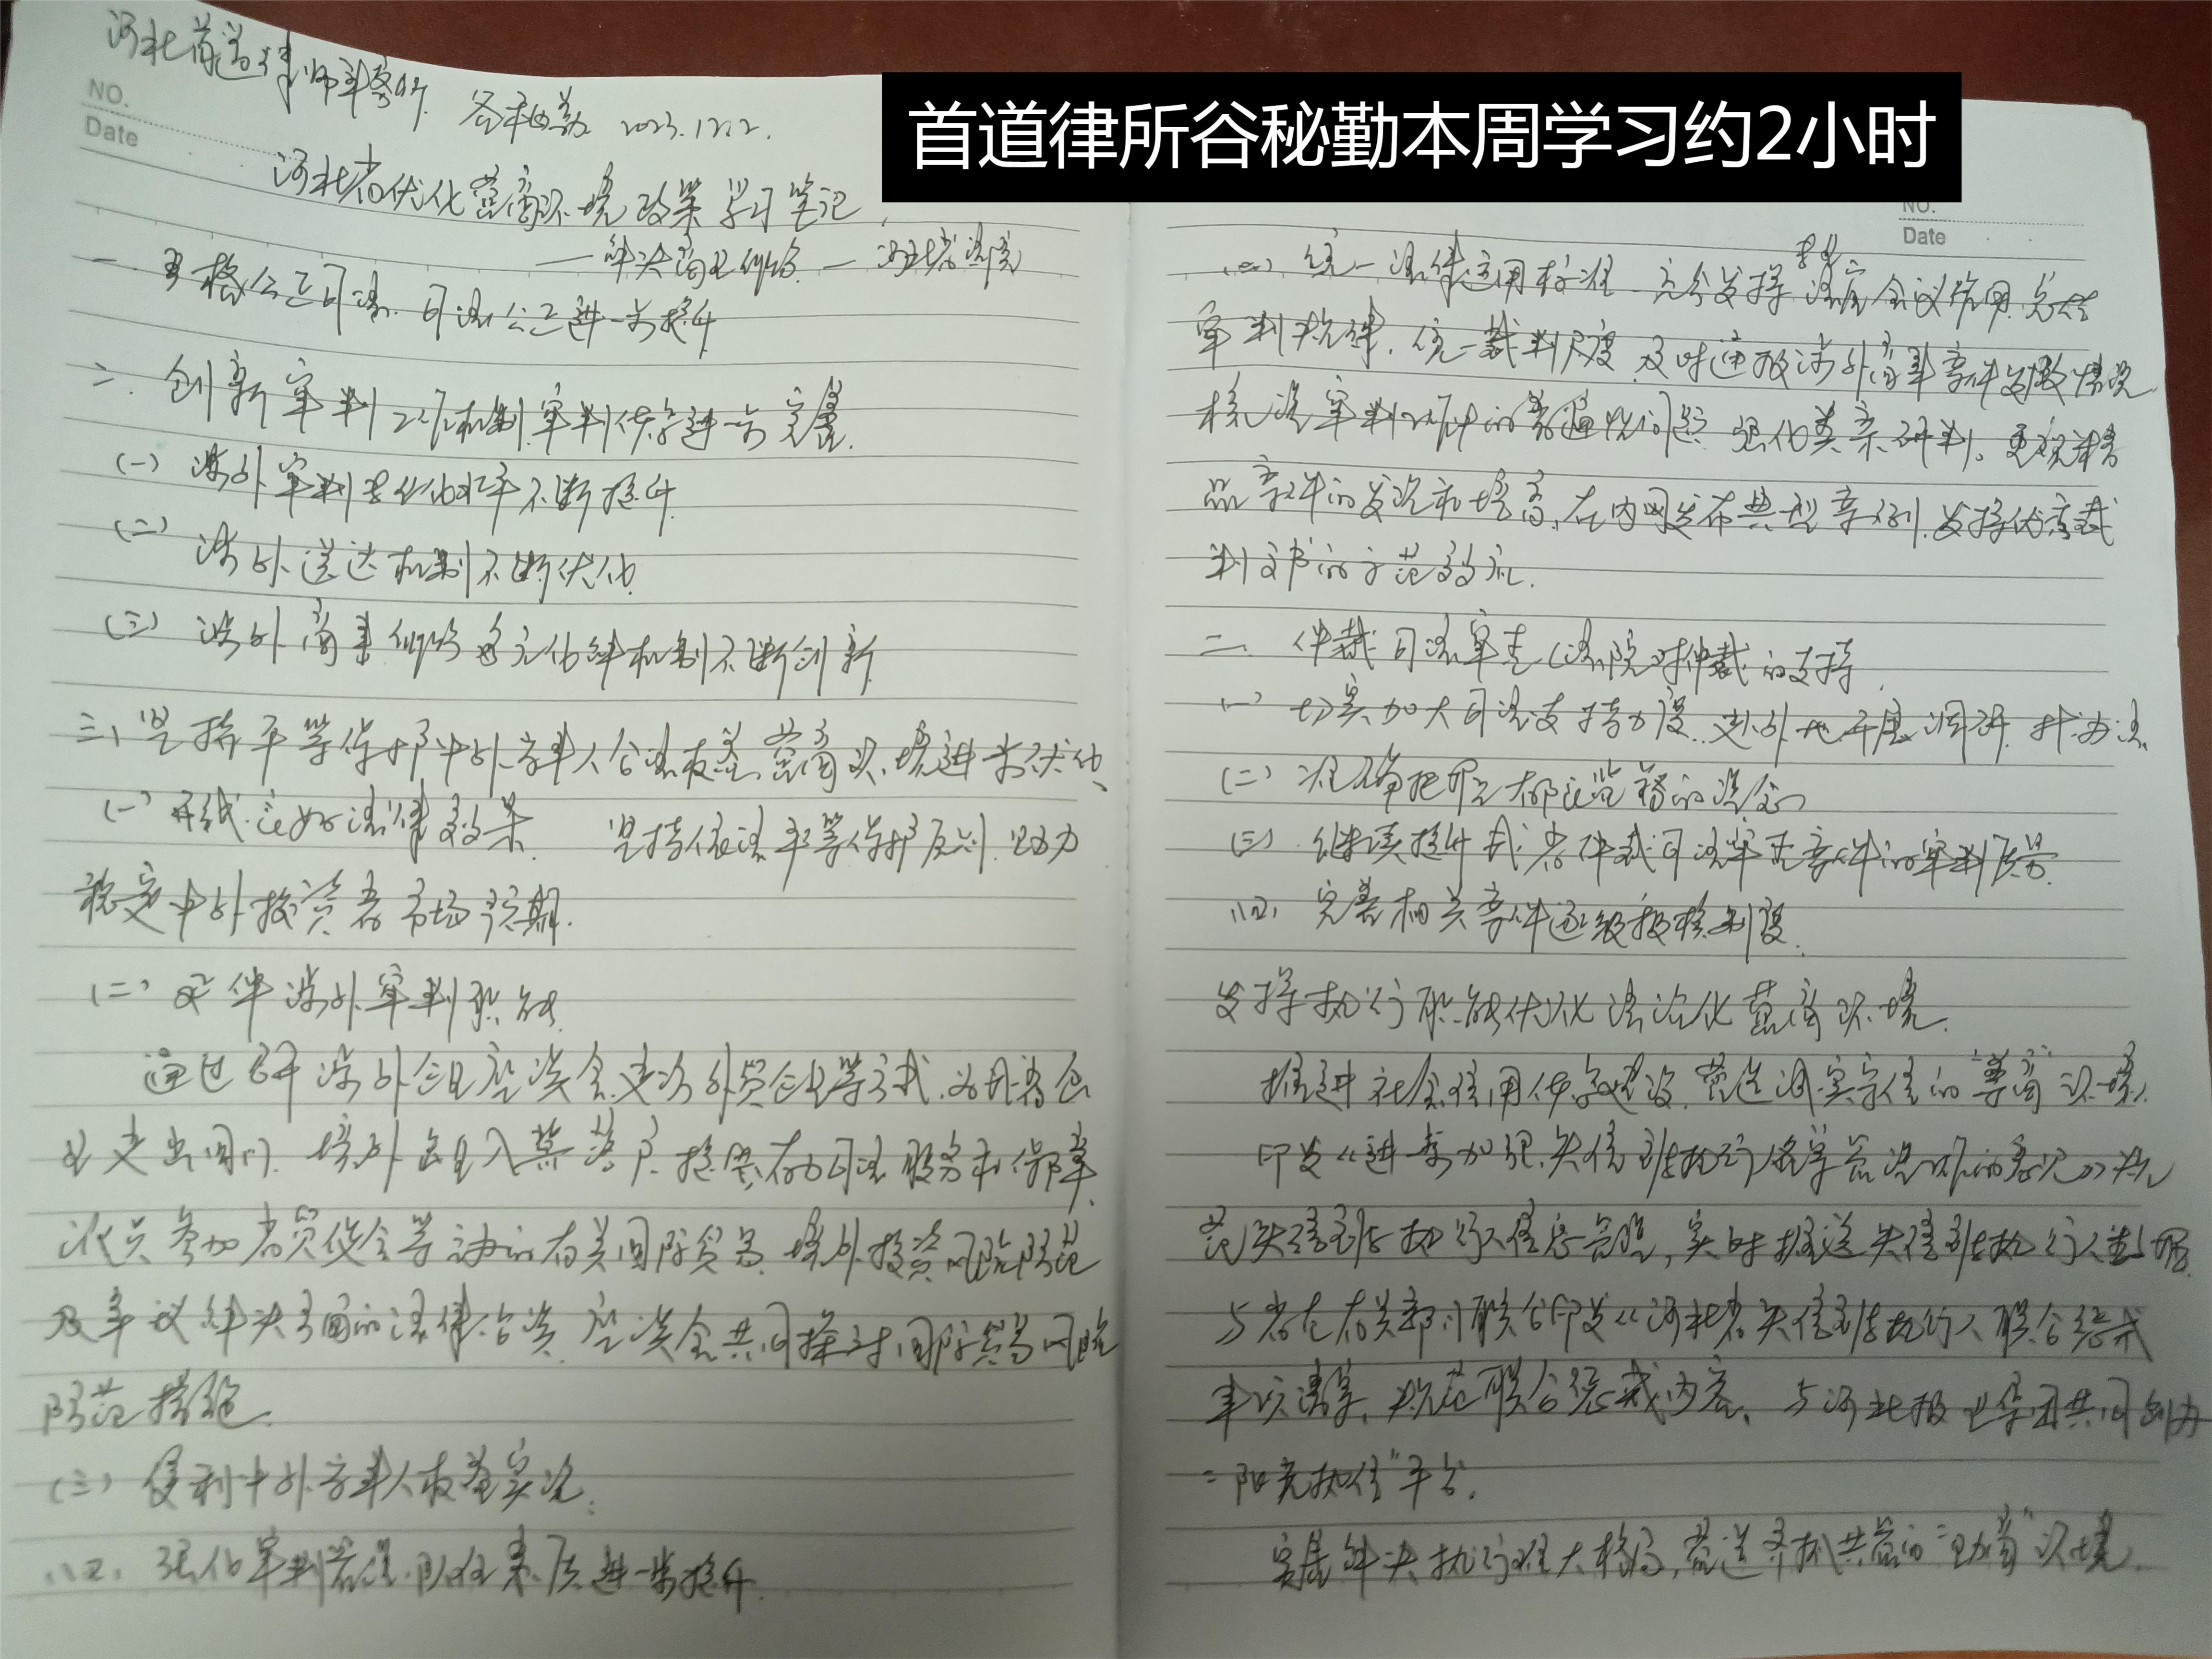 首道律所谷秘勤本周学习约2小时
河北首道律师事务所 谷秘勤 2023.12.2.
NO.
Date
河北省优化营商环境政策学习笔记
——解决商业纠纷—河北省法院
一、严格公正司法、司法公正进一步提升
二、创新审判工作机制,审判体系进一步完善.
(一) 涉外审判专业化水平不断提升.
(二) 涉外送达机制不断优化
(三) 涉外商事纠纷多元化解机制不断创新
三、坚持平等保护中外当事人合法权益,营商环境进一步优化、
(一) 形成良好法律效果. 坚持依法平等保护原则.助力
稳定中外投资者市场预期.
(二) 延伸涉外审判职能.
通过召开涉外企业座谈会,走访外资企业等方式,为我省企
业走出国门、境外企业入冀落户,提供有力司法服务和保障.
派员参加省贸促会等主办的有关国际贸易、境外投资风险防范
及争议解决方面的法律洽谈、座谈会共同探讨国际贸易风险
防范措施.
(三) 便利中外当事人权益实现.
(四) 强化审判管理.队伍素质进一步提升.
NO.
Date
统一法律适用标准.充分发挥专业法官会议作用,完善
审判机制,统一裁判尺度,及时通报涉外商事案件发改情况
梳理审判工作中的普遍性问题,强化类案研判。更视精
品案件的发现和培育,在内网发布典型案例,发挥优秀裁
判文书的示范效应.
二、仲裁司法审查(法院对仲裁的支持
(一) 切实加大司法支持力度.赴外地开展调研,找办法
(二) 准确把握支持监督的理念
(三) 继续提升我省仲裁司法审查案件的审判质量.
(四) 完善相关案件逐级报核制度.
发挥执行职能优化法治化营商环境.
推进社会信用体系建设,营造诚实守信的“尊商”环境.
印发《进一步加强失信被执行人名单管理工作的意见》规
范失信被执行人信息管理,实时推送失信被执行人数据.
与省直有关部门联合印发《河北省失信被执行人联合惩戒
事项清单》,规范联合惩戒内容、与河北报业集团共同创办
“阳光执信”平台.
完善解决执行难大格局,营造齐抓共管的“助商”环境.